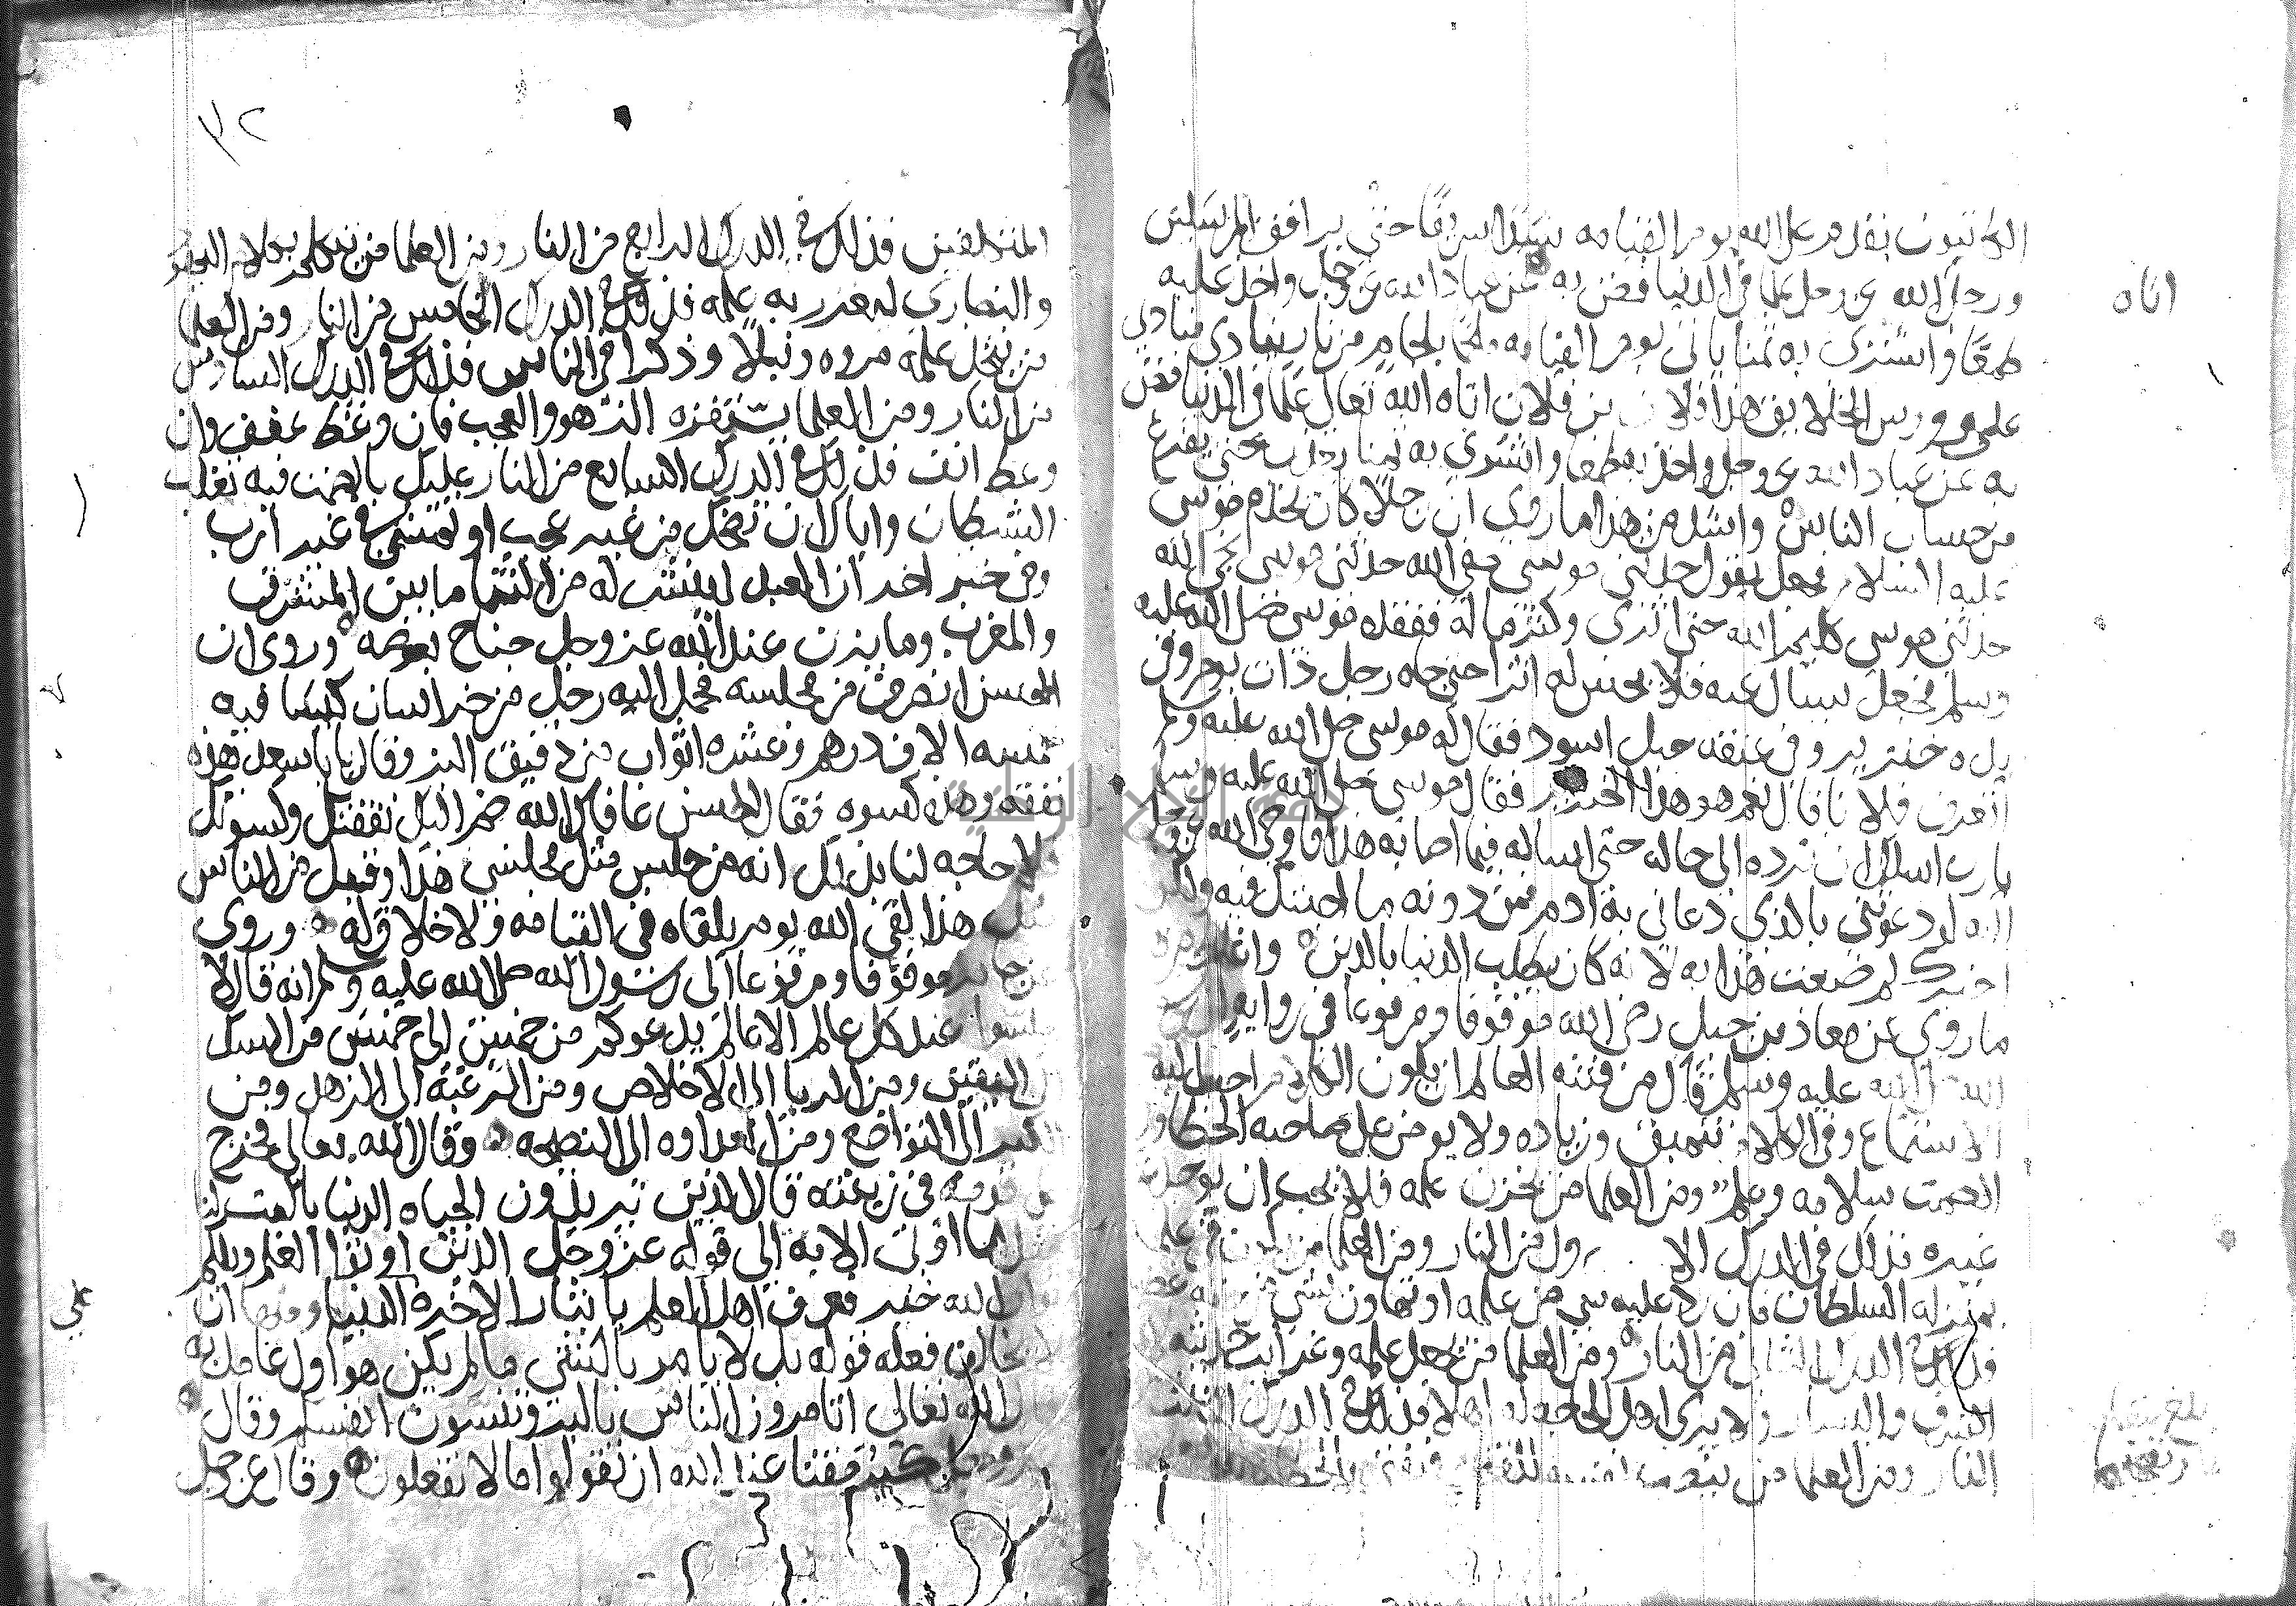 الكاتبون يقدم على الله يوم القيامة سيدا شريفا حتى يرافق المرسلين
ورجل اتاه الله عز وجل علما في الدنيا فضن به عن عباد الله عز وجل واخذ عليه
اتاه
طمعا واشترى به ثمنا ياتي يوم القيامه ملجما بلجام من نار ينادي منادي
على رووس الخلايق هذا فلان بن فلان اتاه الله تعالى علما في الدنيا فضن
به عن عباد الله عز وجل واخذ به طمعا واشترى به ثمنا يعذب حتى يفرغ
من حساب الناس واشد من هذا ما روي ان رجلا كان يخدم موسى
عليه السلام فجعل يقول حدثني موسى صفي الله حدثني موسى نجي الله
حدثني موسى كليم الله حتى اثرى وكثر ماله ففقده موسى صلى الله عليه
وسلم فجعل يسال عنه فلا يحس له اثرا حتى جاه رجل ذات يوم وفي
يده خنزير وفي عنقه حبل اسود فقال له موسى صلى الله عليه وسلم
اتعرف فلانا قال نعم هو هذا الخنزير فقال موسى صلى الله عليه وسلم
يا رب اسالك ان ترده الى حاله حتى اساله فيما اصابه هذا فاوحى الله عز وجل
اليه لو دعوتني بالذي دعاني به ادم فمن دونه ما اجبتك فيه ولكن
اخبرك لم صنعت هذا به لانه كان يطلب الدنيا بالدين
ما روي عن معاذ بن جبل رضي الله موقوفا ومرفوعا في رواية
الله عليه وسلم قال من فتنة العالم ان يكون الكلام احب اليه
الاستماع وفي الكلام تنميق وزياده ولا يومن على صاحبه الخطا و
الصمت سلامه وعلم ومن العلما من يخزن علمه فلا يحب ان يوجد
غيره فذلك في الدرك الاول من النار ومن العلما من يكون في علمه
بمنزله السلطان فان رد عليه شي من علمه او تهاون بشي
فذلك في الدرك الثاني من النار ومن العلما من يجعل علمه وغرايب حديثه
الشرف واليسار ولا يرى اهل الحاجه له اهلا فذلك في الدرك الثالث
النار ومن العلما من ينصب نفسه للفتيا فيفتي بالخطا
بلغ
٣٢
المتكلفين فذلك في الدرك الرابع من النار ومن العلما من يتكلم بكلام اليهود
والنصارى ليغزر به علمه فذلك في الدرك الخامس من النار ومن العلما
من يتخذ علمه مروه ونبلا وذكرا في الناس فذلك في الدرك السادس
من النار ومن العلما يستفزه الزهو والعجب فان وعظ عنف وان
وعظ انف فذلك في الدرك السابع من النار عليك بالصمت فبه تغلب
الشيطان واياك ان تضحك من غير عجب او تمشي في غير ارب
وفي خبر اخر ان العبد لينشر له من الثنا ما بين المشرق
والمغرب وما يزن عند الله عز وجل جناح بعوضه وروي ان
الحسن انصرف من مجلسه فحمل اليه رجل من خراسان كيسا فيه
خمسه الاف درهم وعشره اثواب من دقيق البز وقال يا با سعيد هذه
نفقه وهذه كسوه فقال الحسن عافاك الله ضم اليك نفقتك وكسوتك
لا حاجه لنا بذلك انه من جلس مثل مجلسي هذا وقبل من الناس
مثل هذا لقي الله يوم يلقاه في القيامه ولا خلاق له وروى
عن جابر موقوفا ومرفوعا الى رسول الله صلى الله عليه وسلم انه قال لا
تجلسوا عند كل عالم الا عالم يدعوكم من خمس الى خمس من الشك
الى اليقين ومن الريا الى الاخلاص ومن الرغبة الى الزهد ومن
الكبر الى التواضع ومن العداوه الى النصيحه وقال الله تعالى فخرج
على قومه في زينته قال الذين يريدون الحياه الدنيا يا ليت لنا
مثل ما اوتي الايه الى قوله عز وجل الذين اوتوا العلم ويلكم
ثواب الله خير فعرف اهل العلم بايثار الاخره الدنيا ومنها ان
لا يخالف فعله قوله بل لا يامر بالشي ما لم يكن هو اول عامل به
قال الله تعالى اتامرون الناس بالبر وتنسون انفسكم وقال
كبر مقتا عند الله ان تقولوا ما لا تفعلون وقال عز وجل